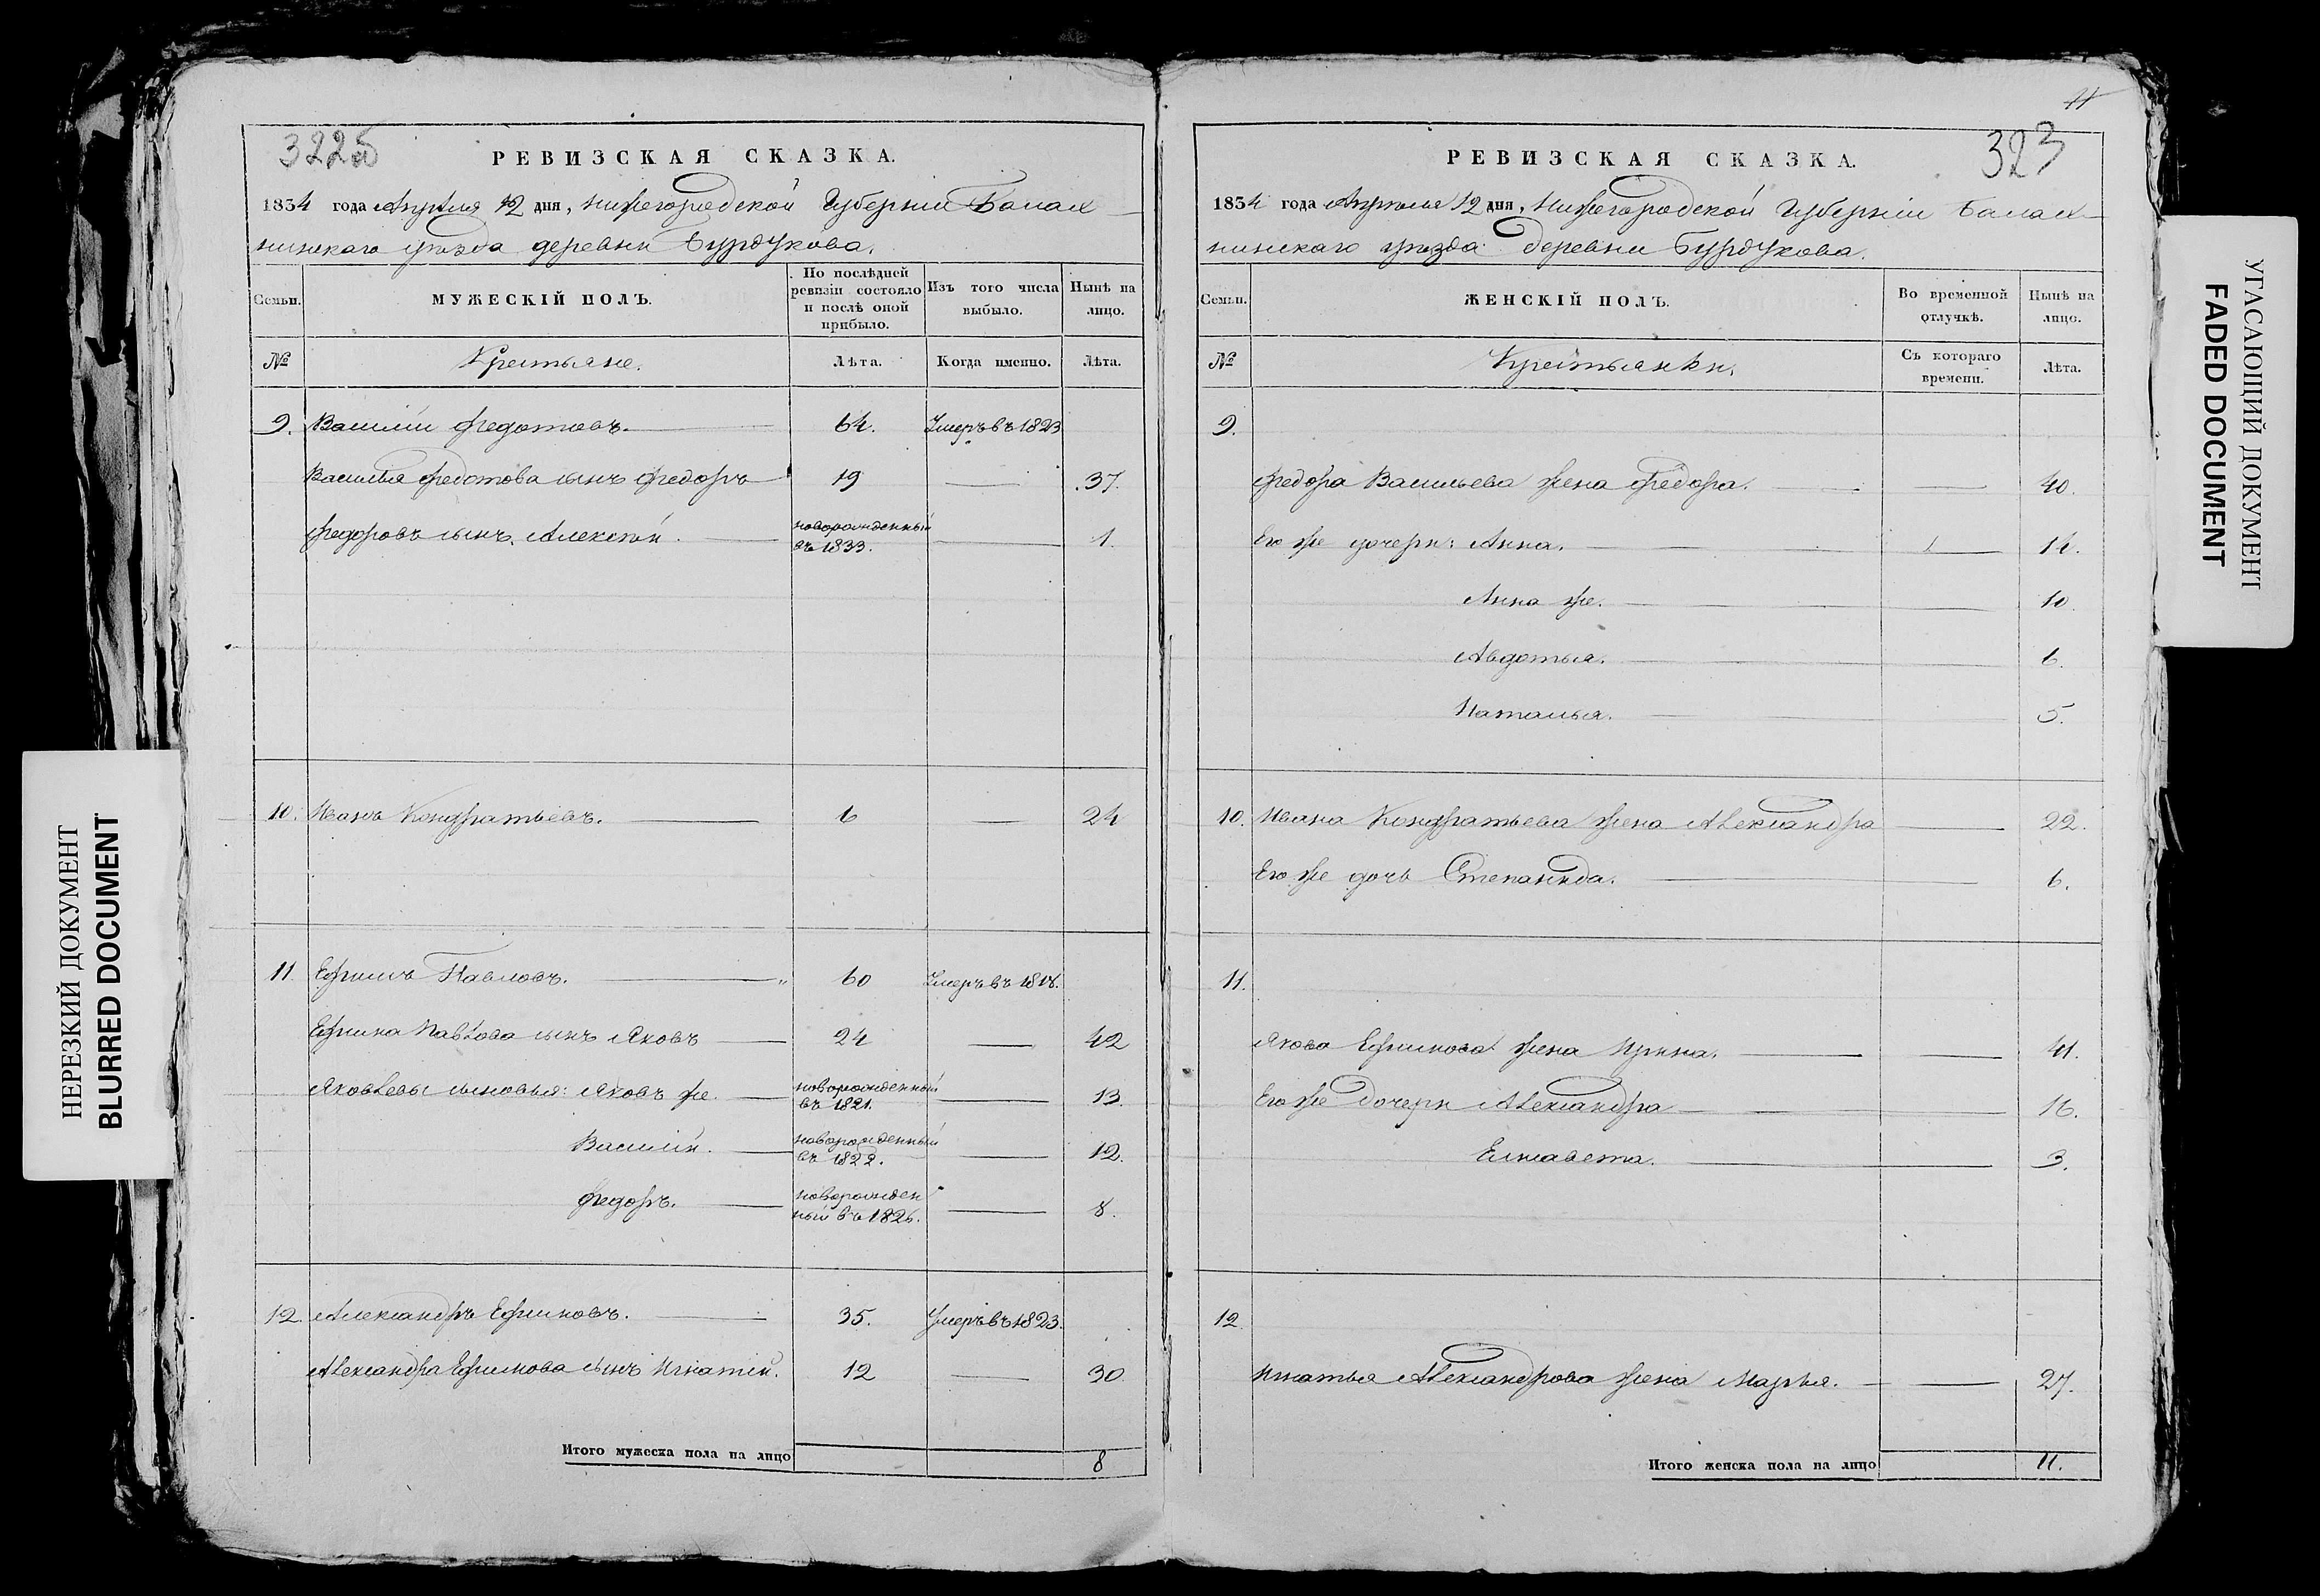 322об
РЕВИЗСКАЯ СКАЗКА.
1834 года Апрѣля 12 дня, Нижегородской Губерніи Балах
нинскаго уѣзда деревни Бурдукова.
Семьи. МУЖЕСКІЙ ПОЛЪ. По послѣдней ревизіи состояло и послѣ оной прибыло. Изъ того числа выбыло. Нынѣ на лицо.
№ Крестьяне. Лѣта. Когда именно. Лѣта.
9. Василій Федотовъ. 64. Умеръ въ 1823
Василья Федотова сынъ Федоръ 19 37.
Федоровъ сынъ Алексѣй. новорожденный въ 1833. 1.
10. Иванъ Кондратьевъ. 6 24
11. Ефимъ Павловъ. 60 Умеръ въ 1818.
Ефима Павлова сынъ Яковъ 24 42
Яковлевы сыновья: Яковъ же. новорожденный въ 1821. 13.
Василій. новорожденный въ 1822. 12.
Федоръ. новорожден ный въ 1826. 8.
12. Александръ Ефимовъ. 35. Умеръ въ 1823.
Александра Ефимова сынъ Игнатій. 12 30
Итого мужеска пола на лицо 8
11
323
РЕВИЗСКАЯ СКАЗКА.
1834 года Апрѣля 12 дня, Нижегородской Губерніи Балах
нинскаго уѣзда деревни Бурдукова.
Семьи. ЖЕНСКІЙ ПОЛЪ. Во временной отлучкѣ. Нынѣ на лицо.
№ Крестьянки. Съ котораго времени. Лѣта.
9.
Федора Васильева жена Федора. 40.
Его же дочери: Анна. 14.
Анна же. 10
Авдотья. 6.
Наталья. 5.
10. Ивана Кондратьева жена Александра 22.
Его же дочь Степанида. 6.
11.
Якова Ефимова жена Ирина. 41.
Его же дочери Александра 16.
Елизавета. 3.
12.
Игнатья Александрова жена Марья. 27.
Итого женска пола на лицо 11.
НЕРЕЗКИЙ ДОКУМЕНТ
BLURRED DOCUMENT
УГАСАЮЩИЙ ДОКУМЕНТ
FADED DOCUMENT